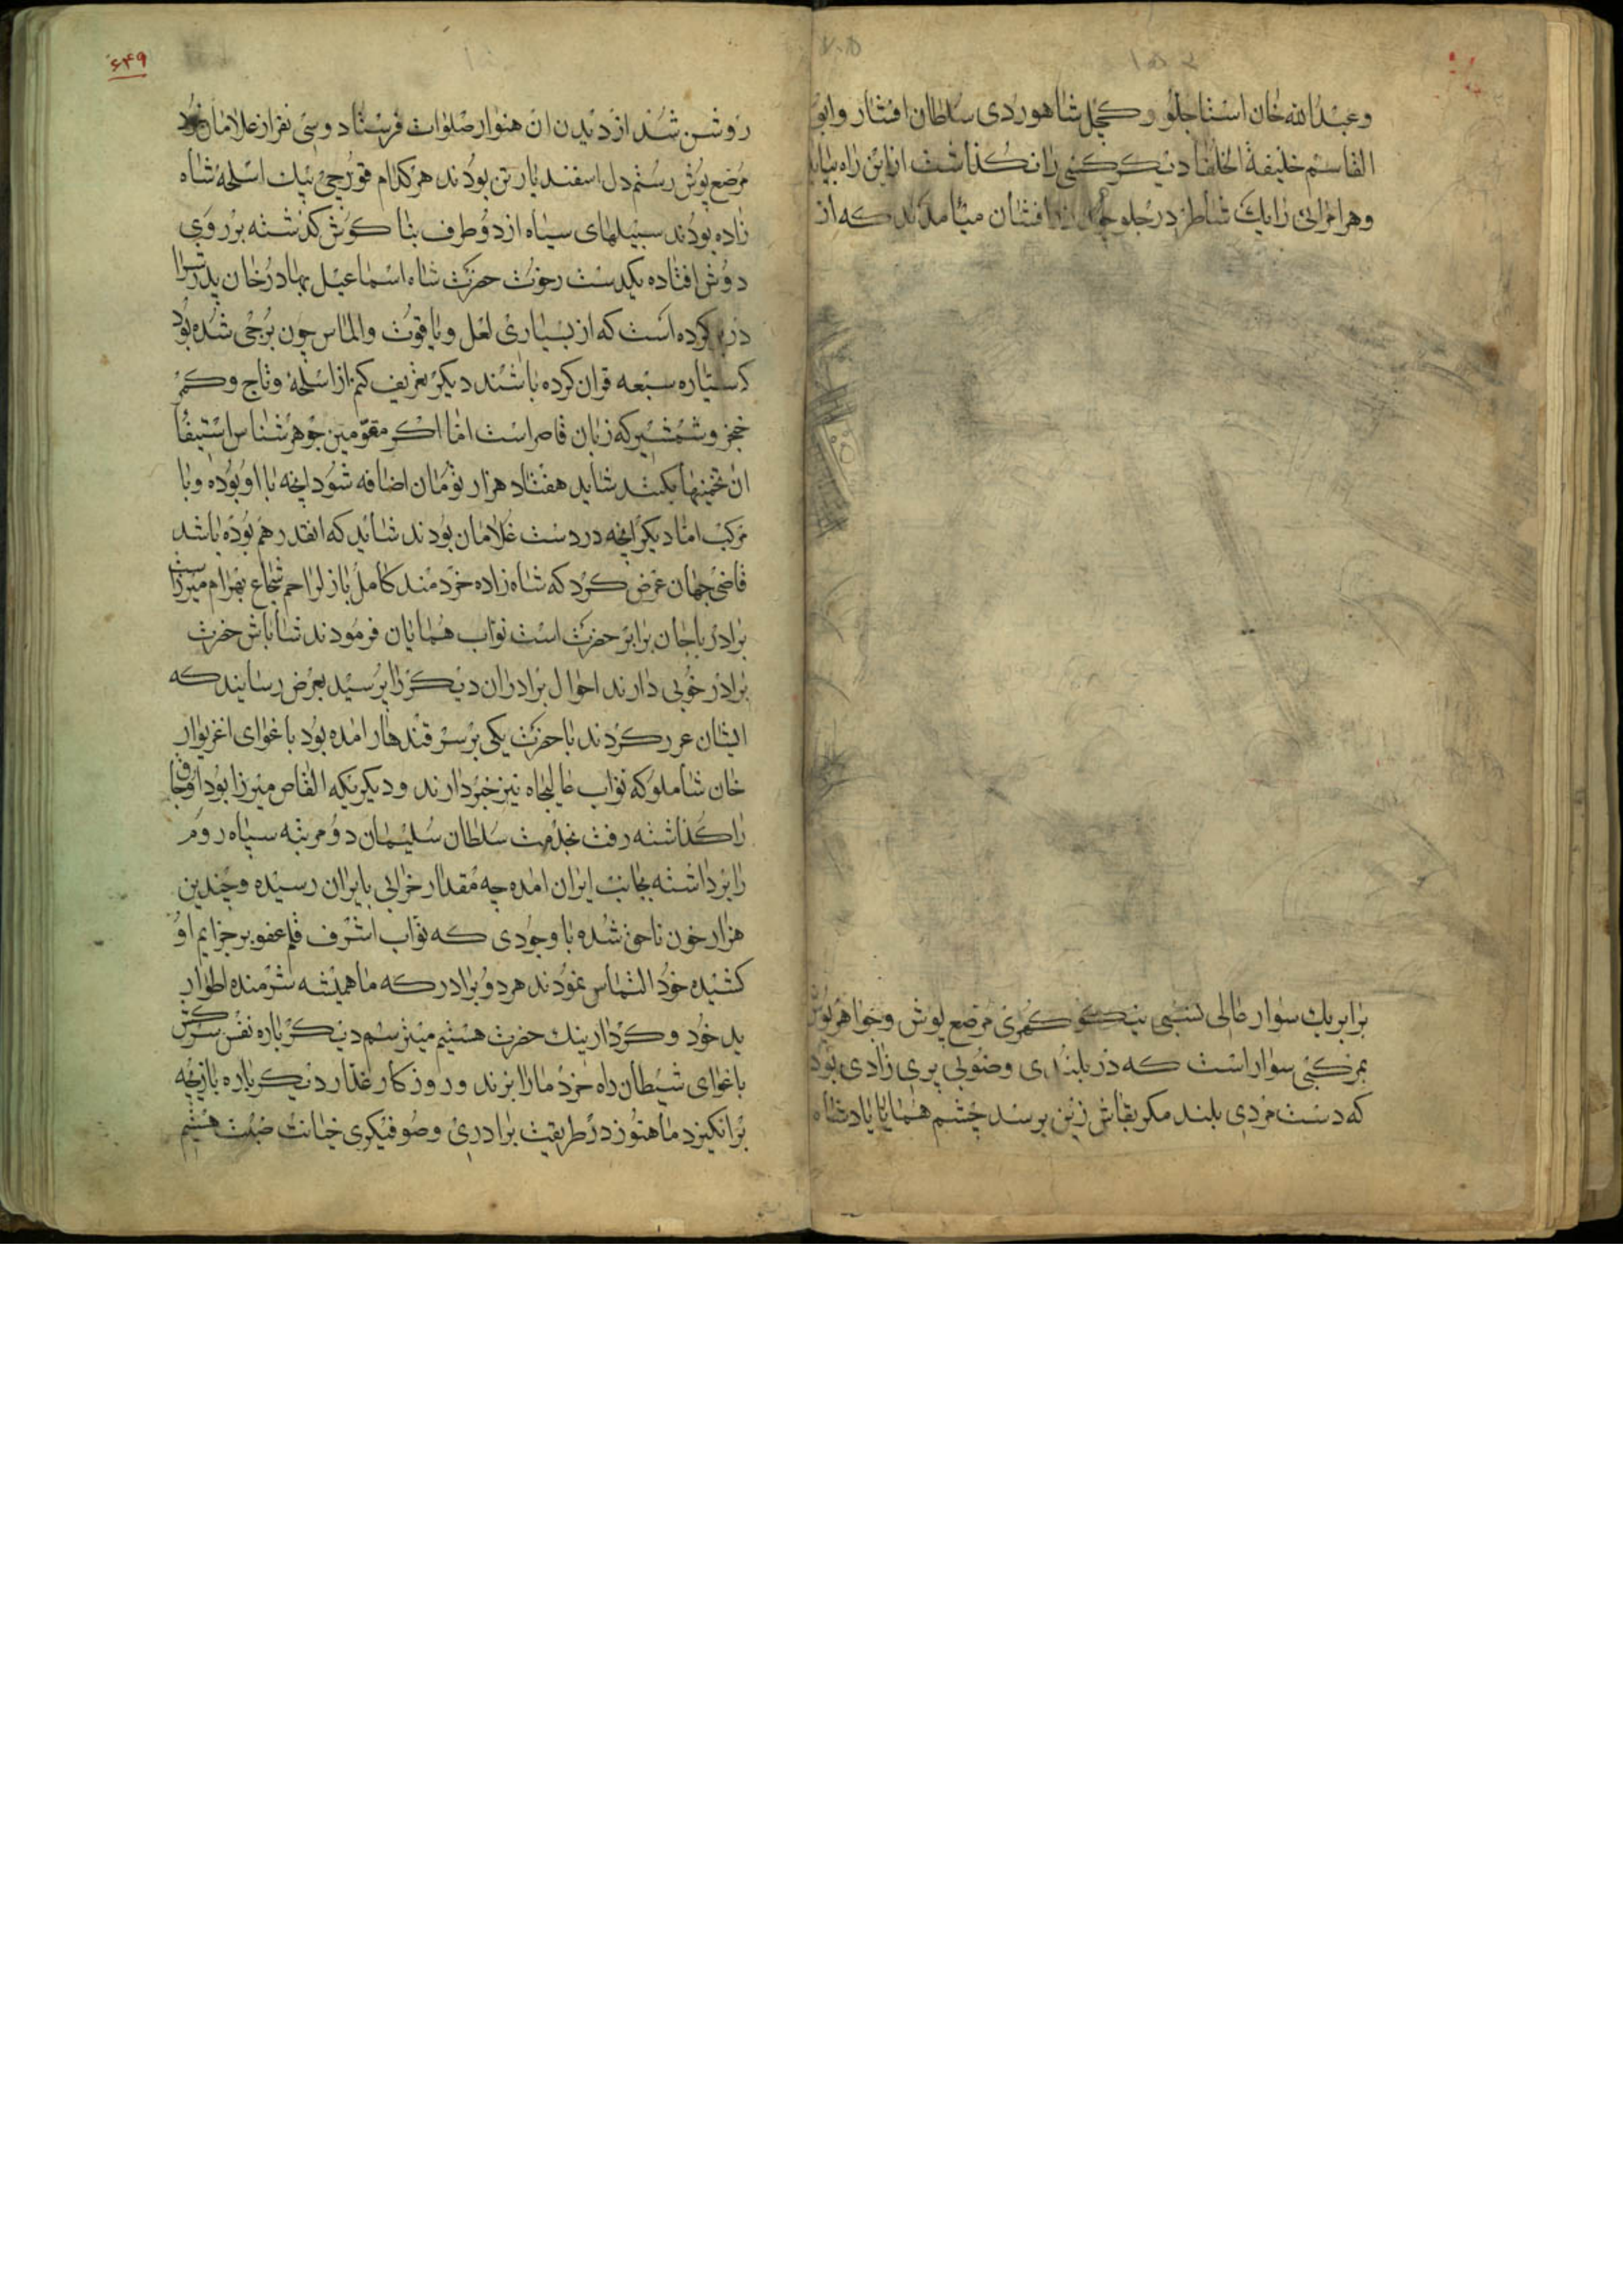 وعبدالله خان استاجلو و کچل شاهوردی سلطان افشار وابو
القاسم خلیفة الخلفا دیکر کسی را نکذاشت ازاین راه بیاید
وهر امرائی رایک شاطر در جلو افتان میامدند که از
برابر یك سوار عالی نسبی نیکو کمری مرصع پوش وجواهرپوش
بمرکبی سوار است که در بلندی وخوبی پری زادی بود
که دست مردی بلند مکر بقاش زین برسد چشم همایایادشاه
۶۴۹
روشن شد از دیدن ان هنوار صلوات فرستاد وسی نفر از غلامان خود
مرصع پوش رستم دل اسفندیار تن بودند هر کدام قورچی بیك اسلحه شاه
زاده بودند سبیلهای سیاه از دو طرف بنا کوش کذشته بر روی
دوش افتاده یکدست رخوت حضرت شاه اسماعیل بهادرخان پدرترا
در بر کرده است که از بسیاری لعل ویاقوت والماس چون برجی شده بود
که سیاره سبعه قران کرده باشند دیکر تعریف کنم از اسلحه وتاج وکمر
خنجر وشمشیر که زبان قاصر است اما اکر مقومین جوهر شناس استیفا
ان تخمینها بکنند شاید هفتاد هزار تومان اضافه شود انچه با او بوده وبا
مرکب اما دیکر انچه در دست غلامان بودند شاید که انقدر هم بوده باشد
قاضی جهان عرض کرد که شاه زاده خردمند کامل باذل راحم شجاع بهرام میرزاست
برادر باجان برابر حضرت است نواب همایان فرمودند شاباش حضرت
برادر خوبی دارند احوال برادران دیکر را پرسید بعرض رسانید که
ایشان عرر کردند با حضرت یکی بر سر قندهار امده بود باغوای اغزیوار
خان شاملو که نواب عالیجاه نیز خبر دارند ودیکر یکه القاص میرزا بود اوجاق
را کذاشته رفت بخدمت سلطان سلیمان دو مرتبه سپاه روم
را برداشته بجانب ایران امده چه مقدار خرابی بایران رسیده وچندین
هزار خون ناحق شده با وجودی که نواب اشرف قلم عفو بر جرایم او
کشیده خود التماس نمودند هر دو برادر که ما همیشه شرمنده اطوار
بد خود وکردار نیك حضرت هستیم میترسیم دیکر باره نفس سرکش
باغوای شیطان راه خرد مارا بزند وروزکار غدار دیکر باره بازیچه
برانکیزد ما هنوز در طریقت برادری وصوفیکری خیانت ضبت هستیم